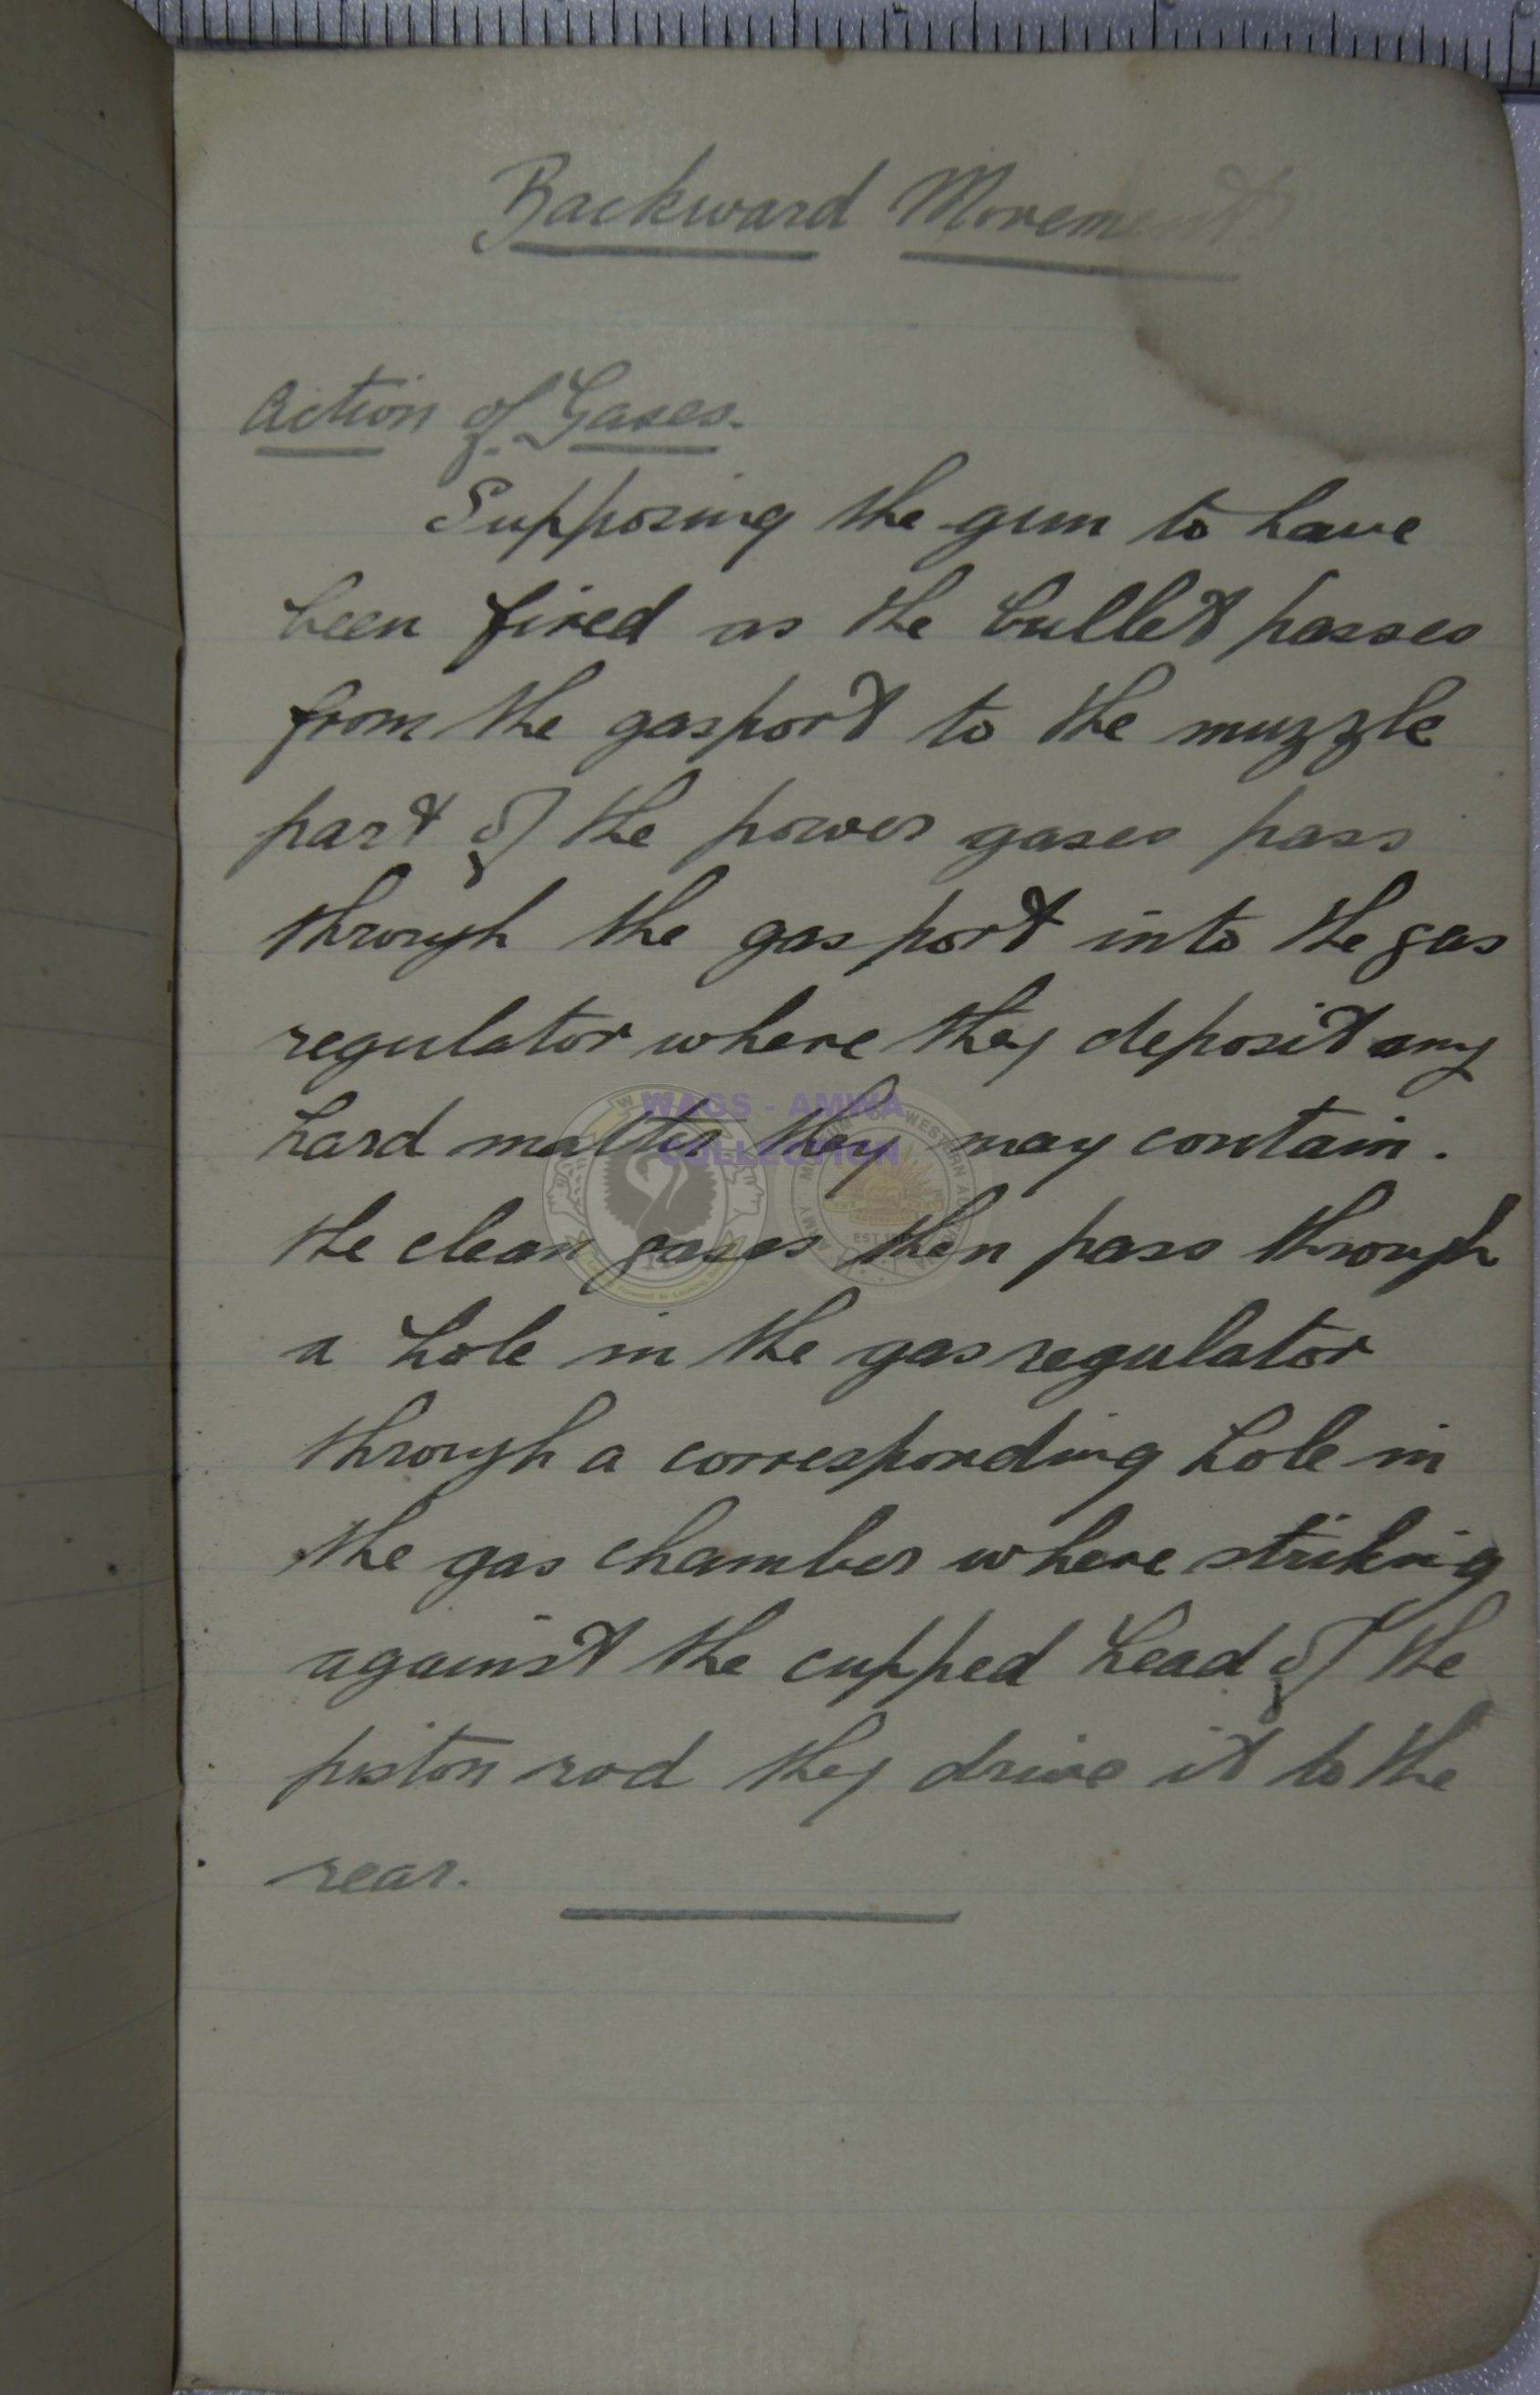 Backward Movement
Action of Gases.
Supposing the gun to have
been fired as the bullet passes
from the gasport to the muzzle
part of the power gases pass
through the gas port into the gas
regulator where they deposit any
hard matter they may contain.
the clean gases then pass through
a hole in the gas regulator
through a corresponding hole in
the gas chamber where striking
against the cupped head of the
piston rod they drive it to the
rear.
WAGS - AMWA
COLLECTION